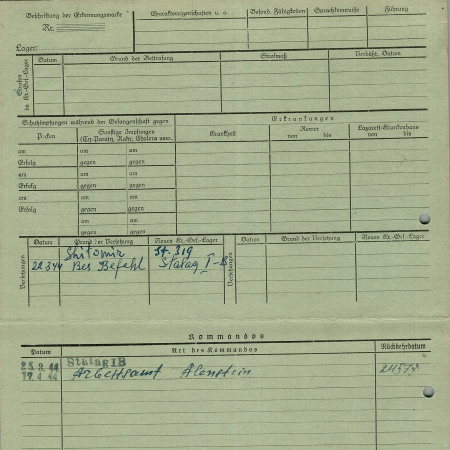 Beschriftung der Erkennungsmarke
Nr.
Lager:
Charaktereigenschaften u. a.
Besond. Fähigkeiten
Sprachkenntnisse
Führung
Strafen im Kr.-Gef.-Lager
Datum
Grund der Bestrafung
Strafmaß
Verbüßt, Datum
Schutzimpfungen während der Gefangenschaft gegen
Erkrankungen
Pocken
Sonstige Impfungen
(Ty-Paraty, Ruhr, Cholera usw.)
Krankheit
Revier
von bis
Lazarett-Krankenhaus
von bis
am am am
Erfolg gegen gegen
am am am
Erfolg gegen gegen
am am am
Erfolg gegen gegen
am am am
Erfolg gegen gegen
am am
gegen gegen
Versetzungen
Datum
Grund der Versetzung
Neues Kr.-Gef.-Lager
Versetzungen
Datum
Grund der Versetzung
Neues Kr.-Gef.-Lager
Shitomir 319
Bes Befehl Stalag I-B
Kommandos
Datum
Art des Kommandos
Rückkehrdatum
25.3.44 Stalag IB
17.4.44 Arbeitsamt Alenstein